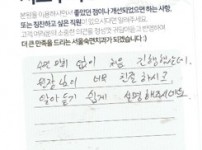 분원을 이용하시면서 좋았던 점이나 개선되었으면 하는 사항,
또는 칭찬하고 싶은 직원이 있으시다면 적어주세요.
고객 여러분의 소중한 의견을
더 큰 만족을 드리는 서울숙면치과가 되겠습니다:)
수면 마취 없이 처음 진행했는데,
원장님이 너무 친절하시고
알아듣기 쉽게 설명해주셔서